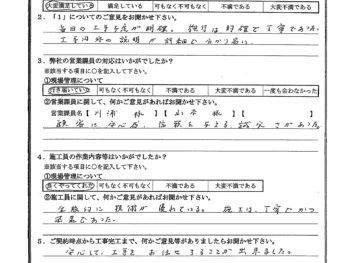 大変満足している 満足している 可もなく不可もなく 不満である 大変不満である
2.「1」についてのご意見をお聞かせ下さい。
毎日の工事予定が明確。施工は的確で丁寧であった。
工事内容の説明が詳細で分かり易い。
3.弊社の営業課員の対応はいかがでしたか?
※該当する項目に○を記入して下さい。
①現場管理について
行き届いていた 可もなく不可もなく 不満である 大変不満である 一度も会わなかった
②営業課員に関して、何かご意見があればお聞かせ下さい。
営業課員名【 川浦 様 】【 山本 様 】
顧客に安心感、信頼を与える、誠実さがあった。
4.施工員の作業内容等はいかがでしたか?
※該当する項目に○を記入して下さい。
①現場管理について
良くやってくれた 可もなく不可もなく 不満である 大変不満である
②施工員に関して、何かご意見があればお聞かせ下さい。
全般的に技術が優れている。施工は、丁寧でかつ
5.ご契約時点から工事完工まで、何かご意見等がありましたらお聞かせ下さい。
安心して、工事をお任せすることが出来ました。